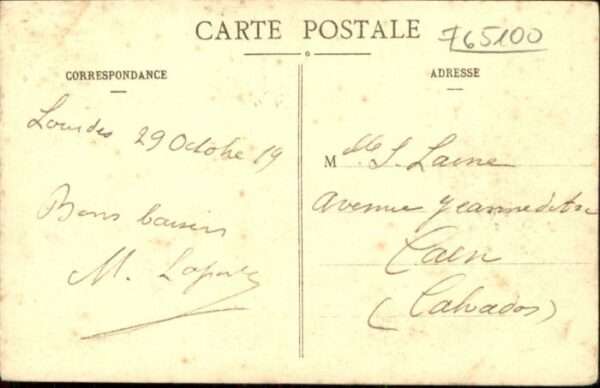 CARTE POSTALE
765100
CORRESPONDANCE
Lourdes 29 Octobre 19
Bons baisers
M.
ADRESSE
Mlle S. Laine
avenue Jeanne d'Arc
Caen
(Calvados)